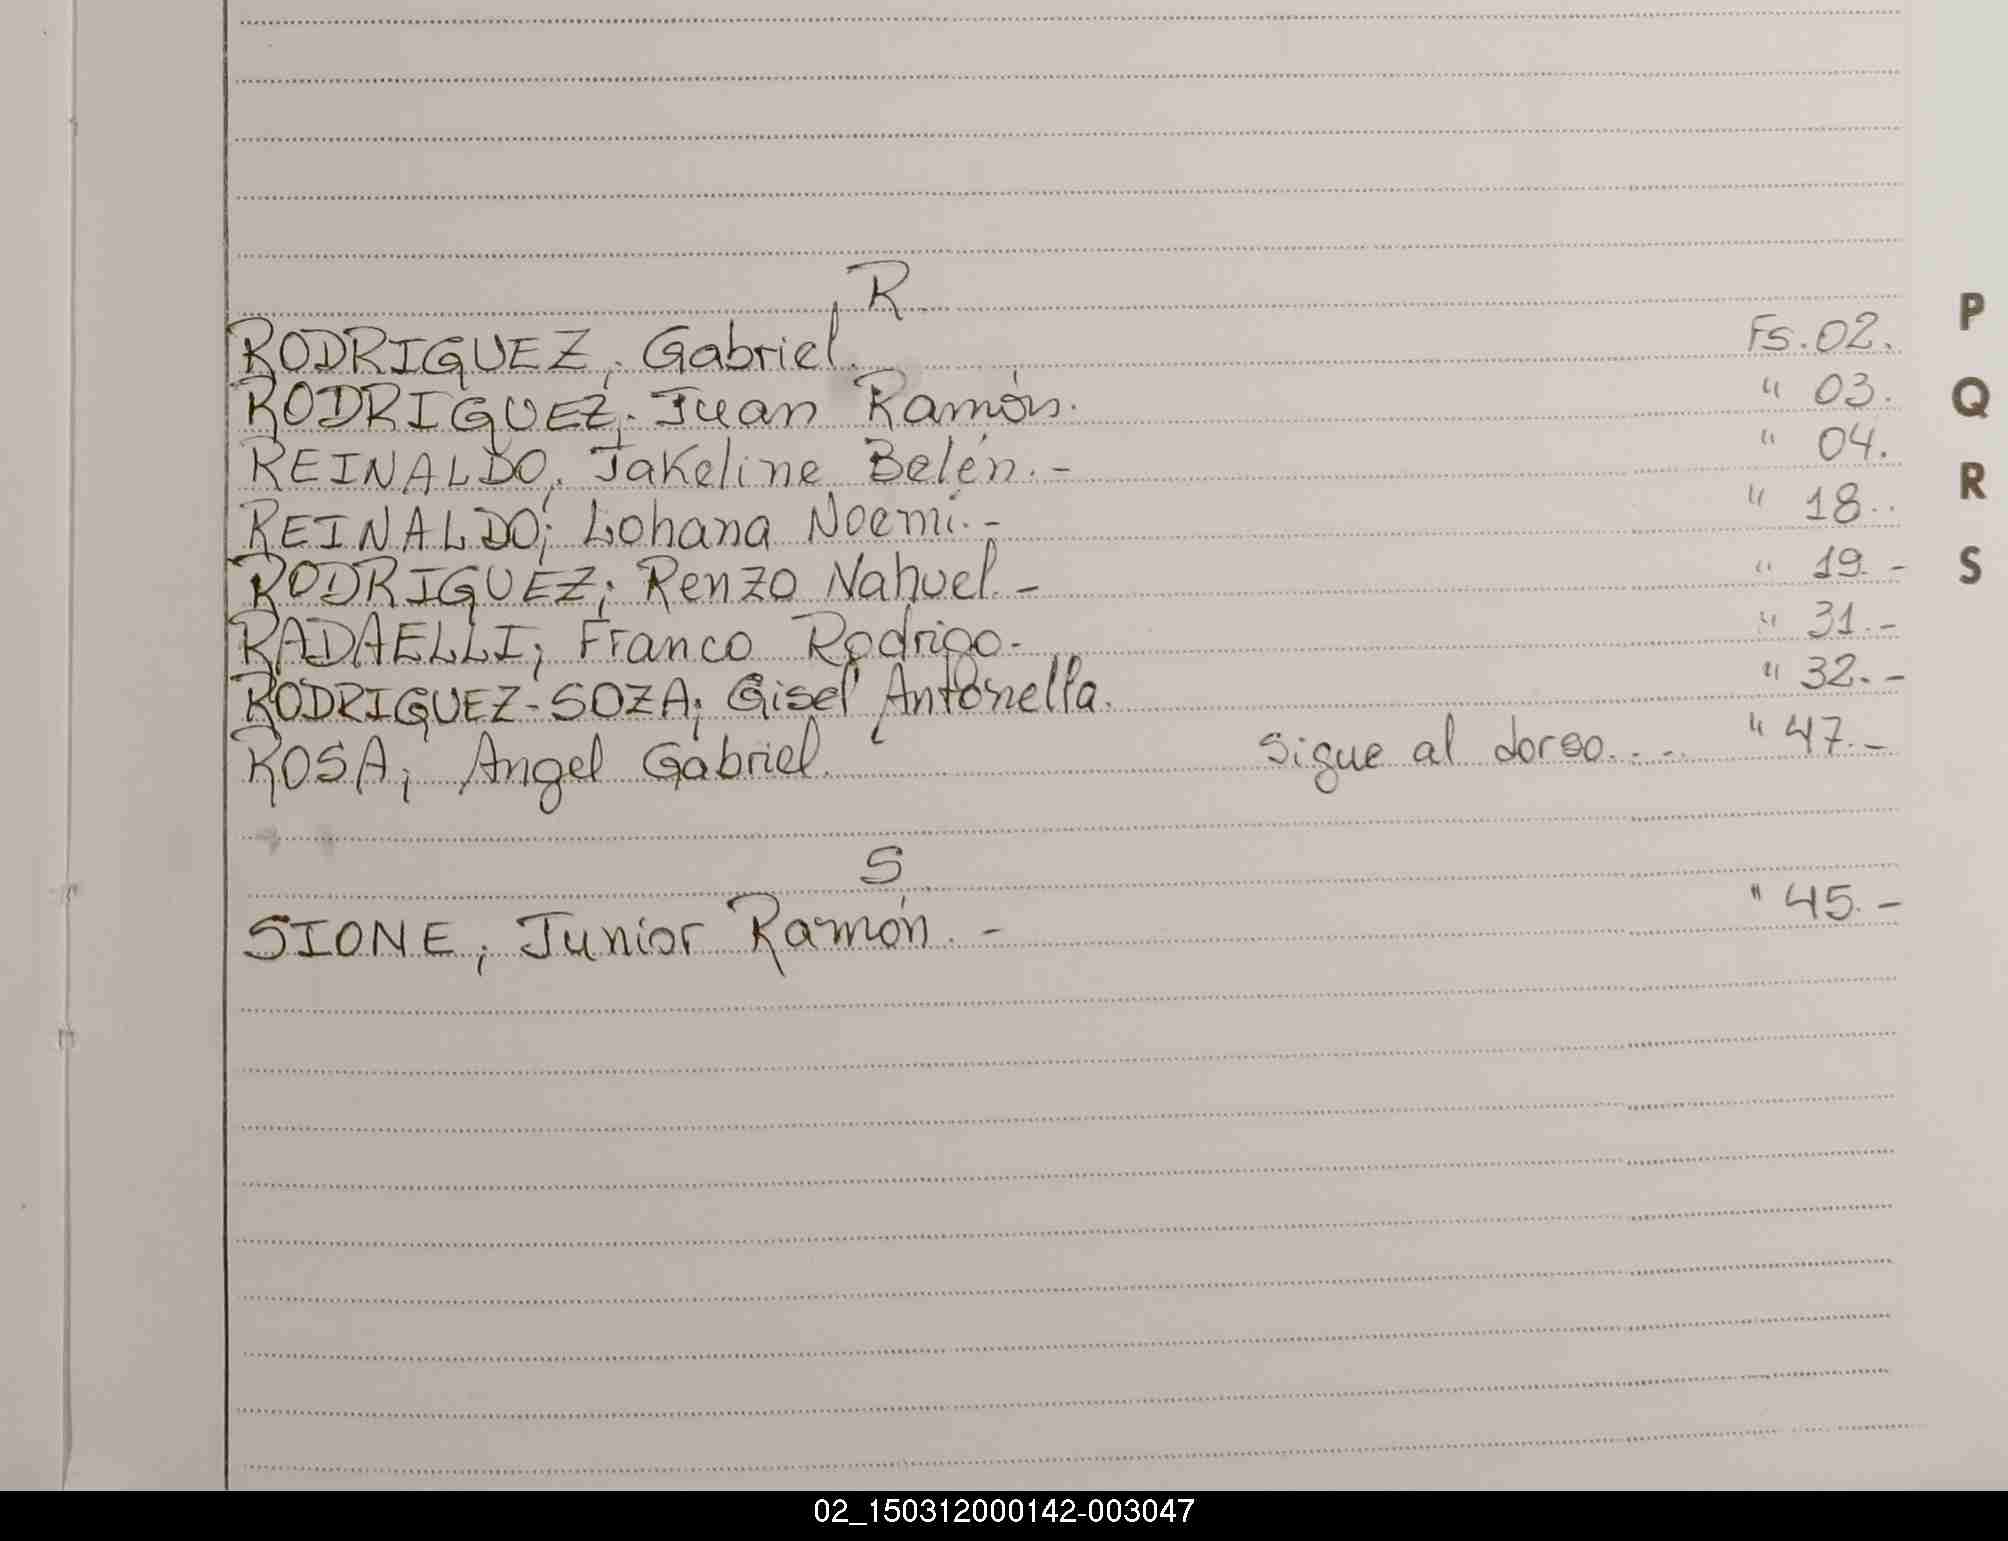 R
RODRIGUEZ; Gabriel. Fs. 02.
RODRIGUEZ; Juan Ramón. " 03.
REINALDO; Jakeline Belén.- " 04.
REINALDO; Lohana Noemí.- " 18.
RODRIGUEZ; Renzo Nahuel.- " 19.-
RADAELLI; Franco Rodrigo.- " 31.-
RODRIGUEZ-SOZA; Gisel Antonella. " 32.-
ROSA; Angel Gabriel. Sigue al dorso.... " 47.-
S
SIONE; Junior Ramón.- " 45.-
P
Q
R
S
02_150312000142-003047